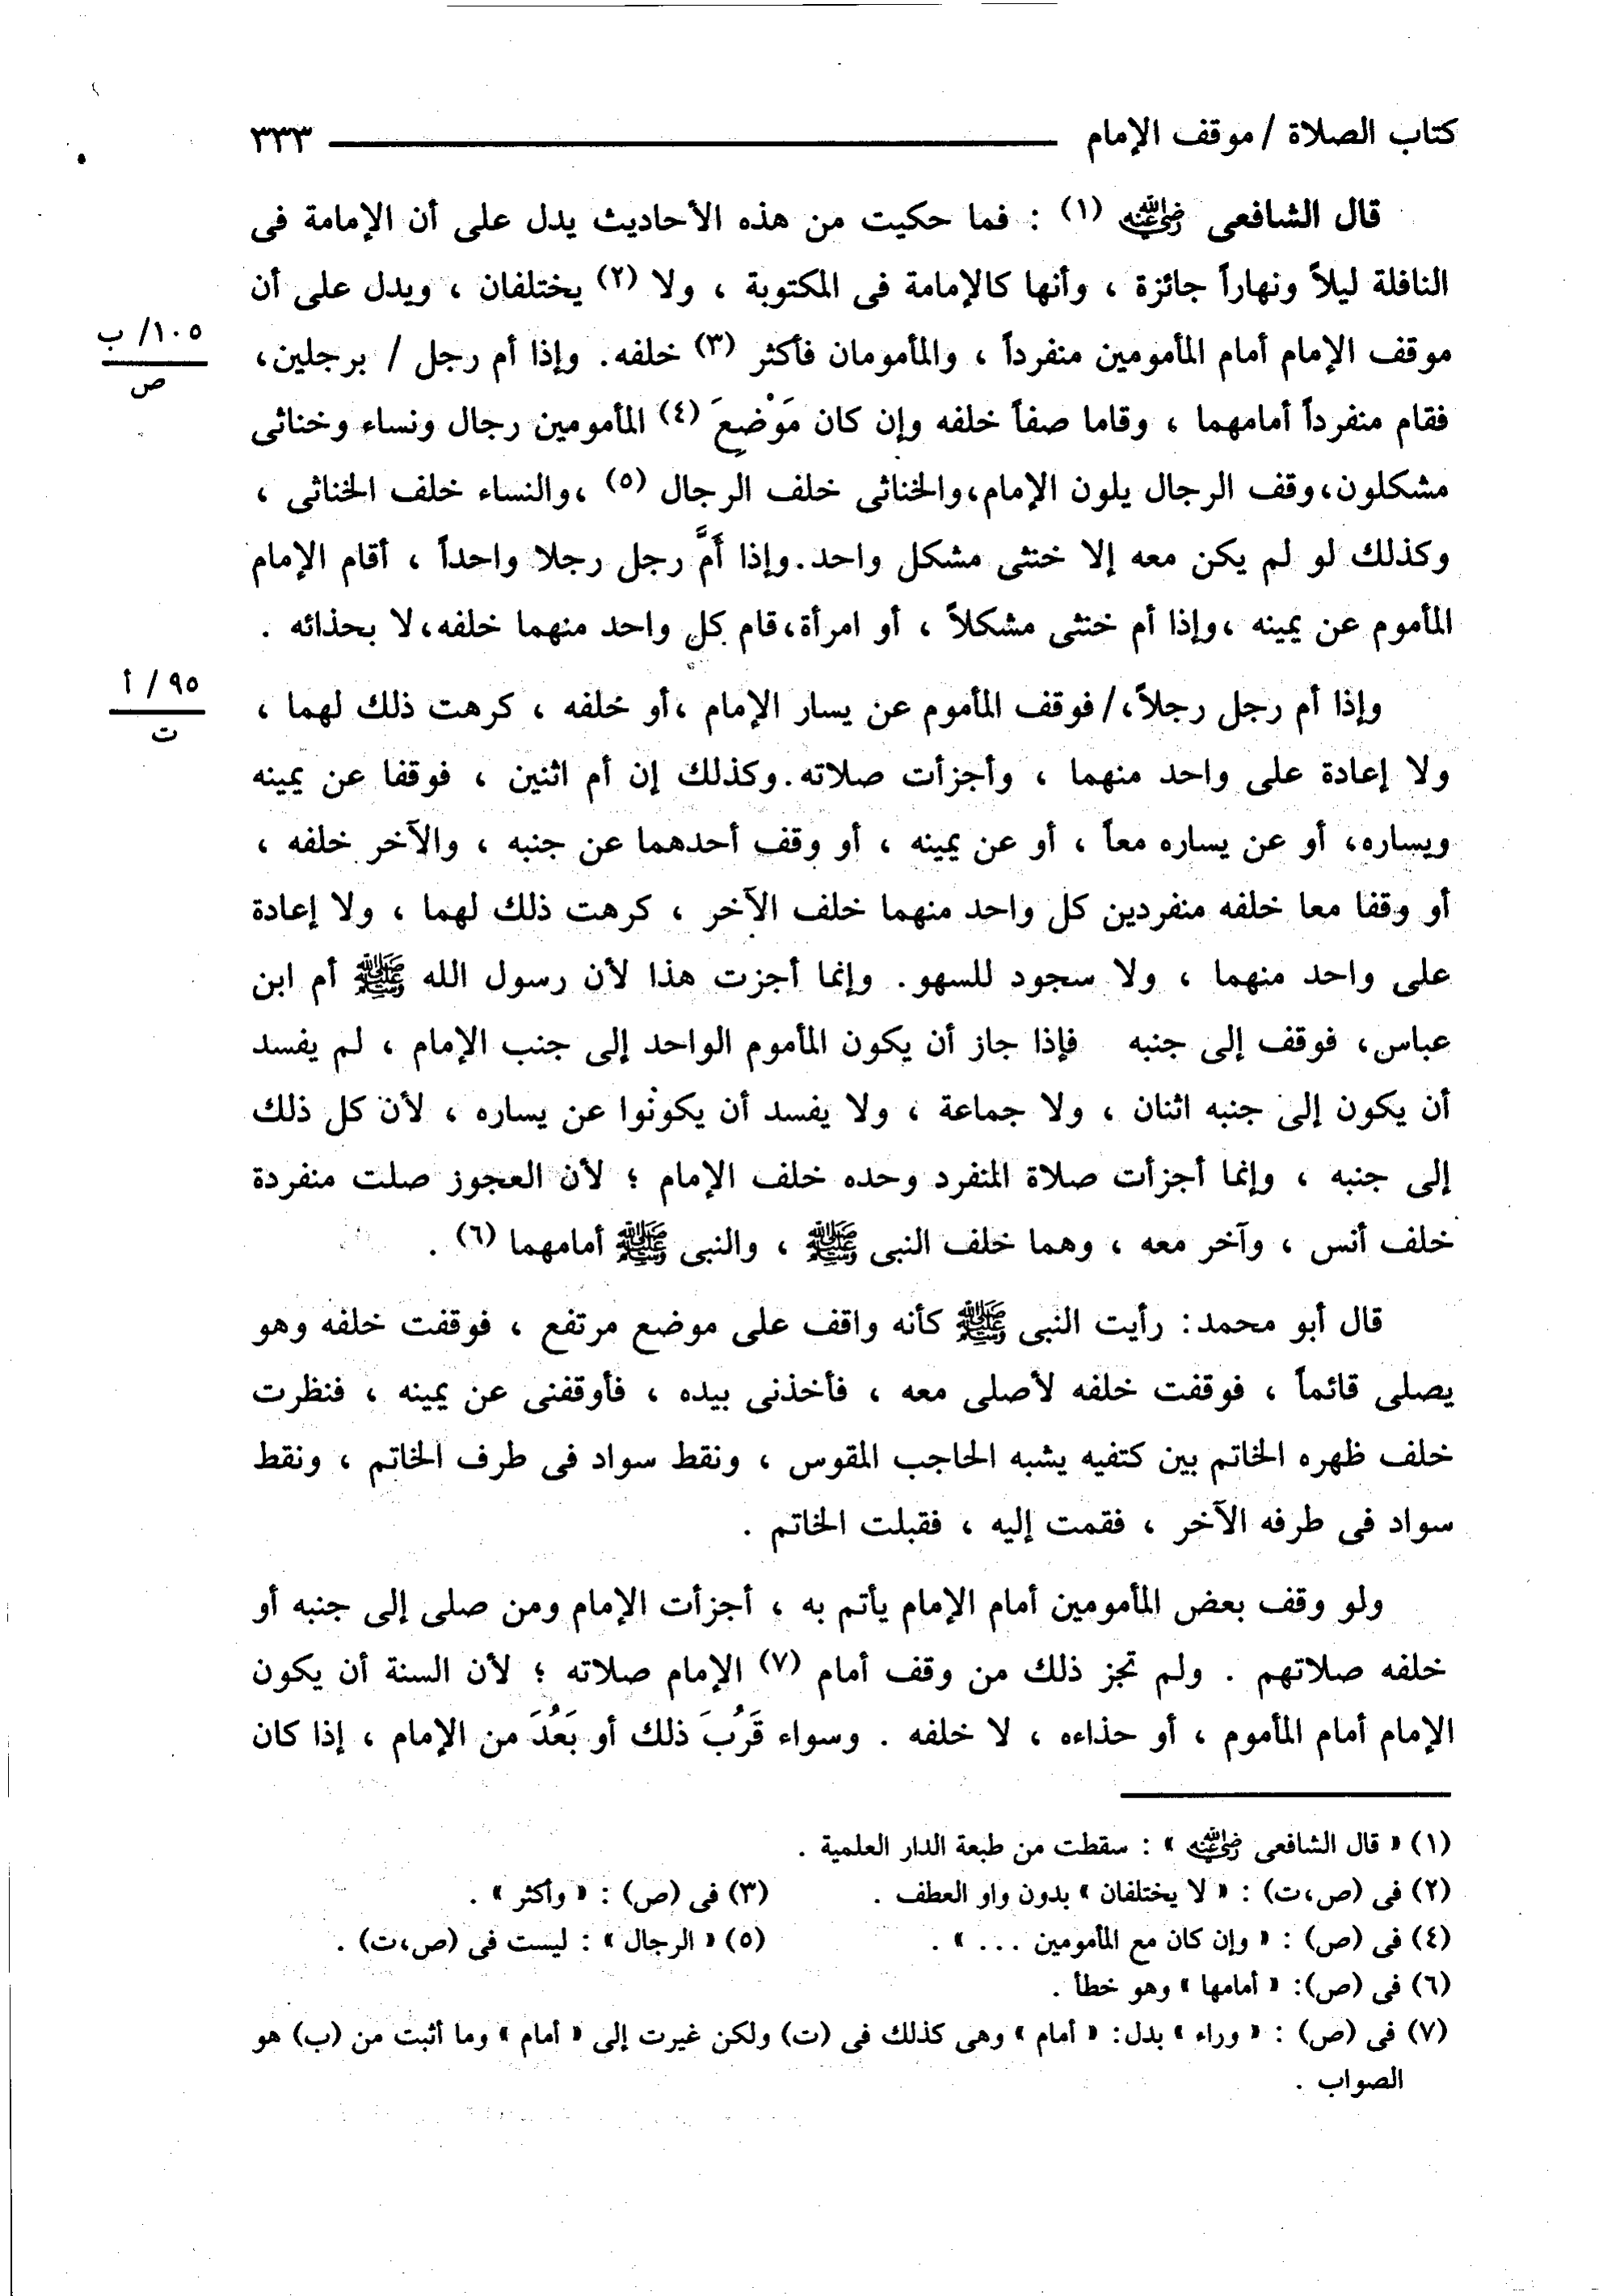 كتاب الصلاة / موقف الإمام ٣٣٣
قال الشافعى رضي الله عنه (١) : فما حكيت من هذه الأحاديث يدل على أن الإمامة فى
النافلة ليلاً ونهاراً جائزة ، وأنها كالإمامة فى المكتوبة ، ولا (٢) يختلفان ، ويدل على أن
موقف الإمام أمام المأمومين منفرداً ، والمأمومان فأكثر (٣) خلفه. وإذا أم رجل / برجلين،
١٠٥/ ب
ص
فقام منفرداً أمامهما ، وقاما صفاً خلفه وإن كان مَوْضِعَ (٤) المأمومين رجال ونساء وخناثى
مشكلون،وقف الرجال يلون الإمام،والخناثى خلف الرجال (٥) ،والنساء خلف الخناثى ،
وكذلك لو لم يكن معه إلا خنثى مشكل واحد.وإذا أَمَّ رجل رجلا واحداً ، أقام الإمام
المأموم عن يمينه ،وإذا أم خنثى مشكلاً ، أو امرأة،قام كل واحد منهما خلفه،لا بحذائه .
وإذا أم رجل رجلاً،/فوقف المأموم عن يسار الإمام ،أو خلفه ، كرهت ذلك لهما ،
٩٥ / أ
ت
ولا إعادة على واحد منهما ، وأجزأت صلاته.وكذلك إن أم اثنين ، فوقفا عن يمينه
ويساره، أو عن يساره معاً ، أو عن يمينه ، أو وقف أحدهما عن جنبه ، والآخر خلفه ،
أو وقفا معا خلفه منفردين كل واحد منهما خلف الآخر ، كرهت ذلك لهما ، ولا إعادة
على واحد منهما ، ولا سجود للسهو. وإنما أجزت هذا لأن رسول الله ﷺ أم ابن
عباس، فوقف إلى جنبه فإذا جاز أن يكون المأموم الواحد إلى جنب الإمام ، لم يفسد
أن يكون إلى جنبه اثنان ، ولا جماعة ، ولا يفسد أن يكونوا عن يساره ، لأن كل ذلك
إلى جنبه ، وإنما أجزأت صلاة المنفرد وحده خلف الإمام ؛ لأن العجوز صلت منفردة
خلف أنس ، وآخر معه ، وهما خلف النبى ﷺ ، والنبى ﷺ أمامهما (٦) .
قال أبو محمد: رأيت النبى ﷺ كأنه واقف على موضع مرتفع ، فوقفت خلفه وهو
يصلى قائماً ، فوقفت خلفه لأصلى معه ، فأخذنى بيده ، فأوقفنى عن يمينه ، فنظرت
خلف ظهره الخاتم بين كتفيه يشبه الحاجب المقوس ، ونقط سواد فى طرف الخاتم ، ونقط
سواد فى طرفه الآخر ، فقمت إليه ، فقبلت الخاتم .
ولو وقف بعض المأمومين أمام الإمام يأتم به ، أجزأت الإمام ومن صلى إلى جنبه أو
خلفه صلاتهم . ولم تجز ذلك من وقف أمام (٧) الإمام صلاته ؛ لأن السنة أن يكون
الإمام أمام المأموم ، أو حذاءه ، لا خلفه . وسواء قَرُبَ ذلك أو بَعُدَ من الإمام ، إذا كان
(١) « قال الشافعى رضي الله عنه » : سقطت من طبعة الدار العلمية .
(٢) فى (ص،ت) : « لا يختلفان » بدون واو العطف . (٣) فى (ص) : « وأكثر » .
(٤) فى (ص) : « وإن كان مع المأمومين ... » . (٥) « الرجال » : ليست فى (ص،ت) .
(٦) فى (ص): « أمامها » وهو خطأ .
(٧) فى (ص) : « وراء » بدل: « أمام » وهى كذلك فى (ت) ولكن غيرت إلى « أمام » وما أثبت من (ب) هو
الصواب .